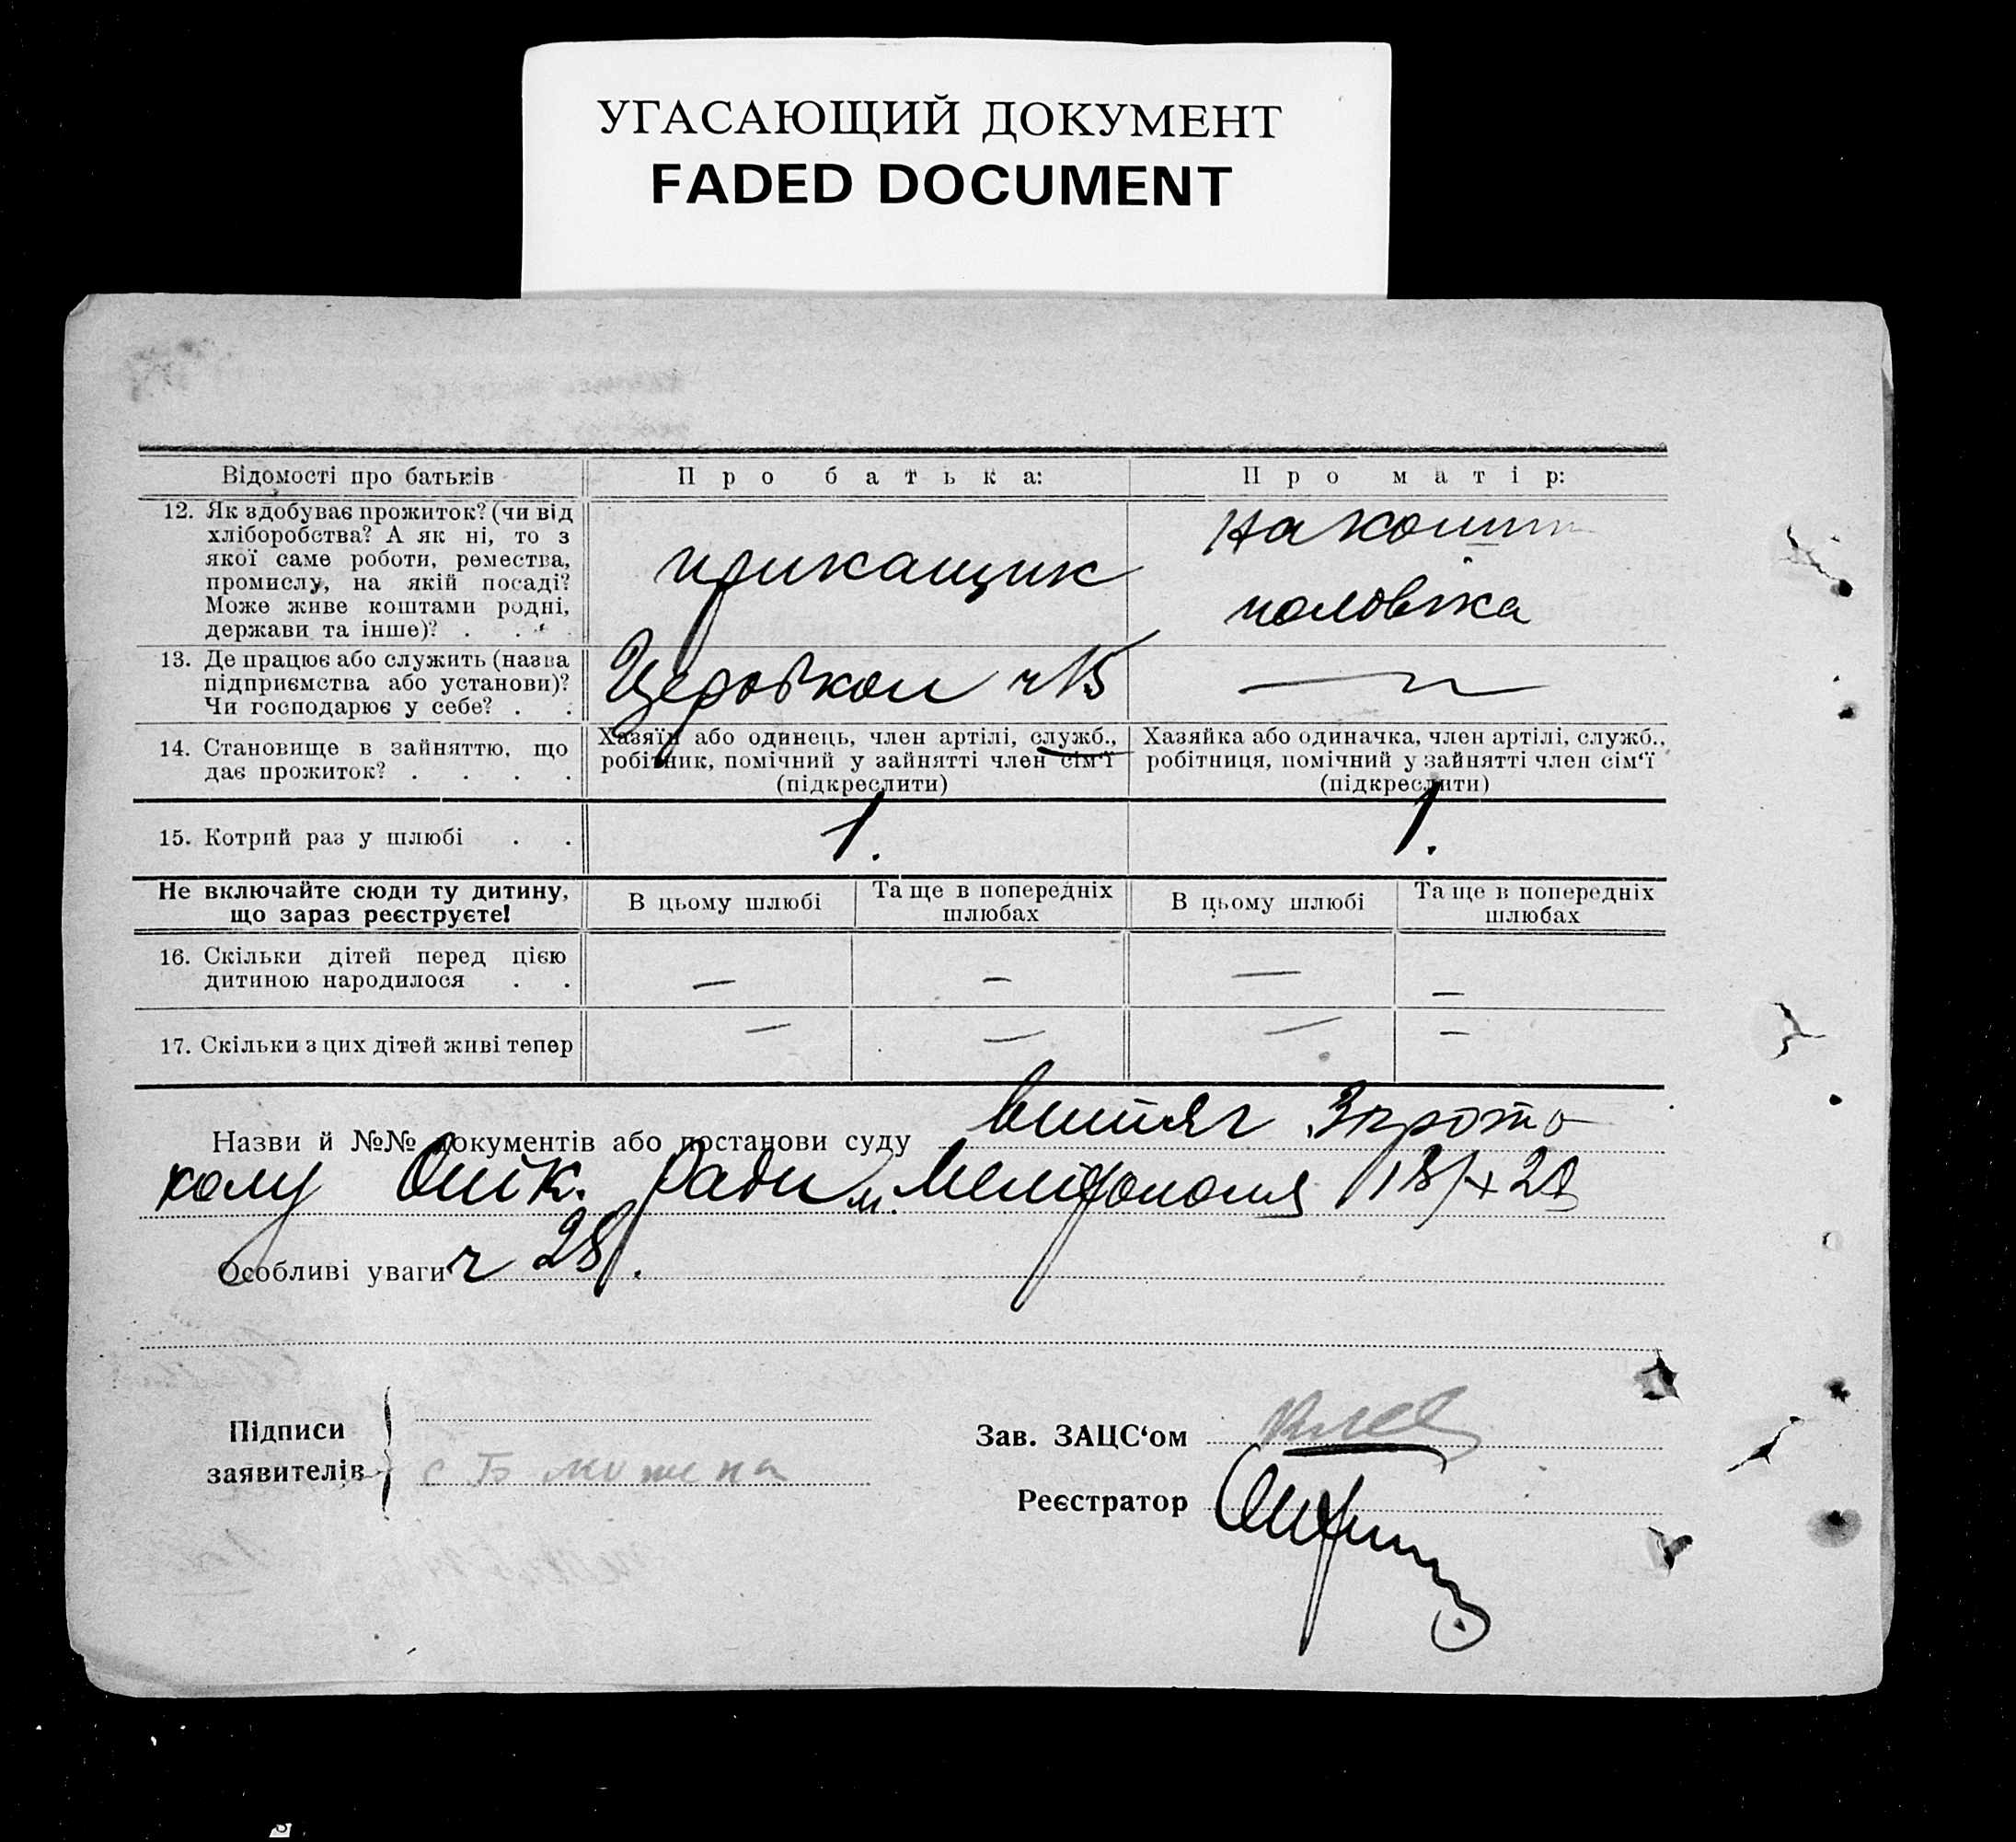 УГАСАЮЩИЙ ДОКУМЕНТ
FADED DOCUMENT
Відомості про батьків
Про батька:
Про матір:
12. Як здобуває прожиток? (чи від
хліборобства? А як ні, то з
якої саме роботи, ремества,
промислу, на якій посаді?
Може живе коштами родні,
держави та інше)? . . .
прикащик
на кошти
чоловіка
13. Де працює або служить (назва
підприємства або установи)?
Чи господарює у себе? . .
Церобкоп ч 15
14. Становище в зайняттю, що
дає прожиток? . . . .
Хазяїн або одинець, член артілі, служб.,
робітник, помічний у зайнятті член сім'ї
(підкреслити)
Хазяйка або одиначка, член артілі, служб.,
робітниця, помічний у зайнятті член сім'ї
(підкреслити)
15. Котрий раз у шлюбі . .
1.
1.
Не включайте сюди ту дитину,
що зараз реєструєте!
В цьому шлюбі
Та ще в попередніх
шлюбах
В цьому шлюбі
Та ще в попередніх
шлюбах
16. Скільки дітей перед цією
дитиною народилося . .
— — — —
17. Скільки з цих дітей живі тепер
— — — —
Назви й №№ документів або постанови суду витяг з прото
колу Опік. Ради м. Мелітополя 13/X 28
Особливі уваги ч 28.
Підписи
заявителів
Зав. ЗАЦС'ом
Реєстратор